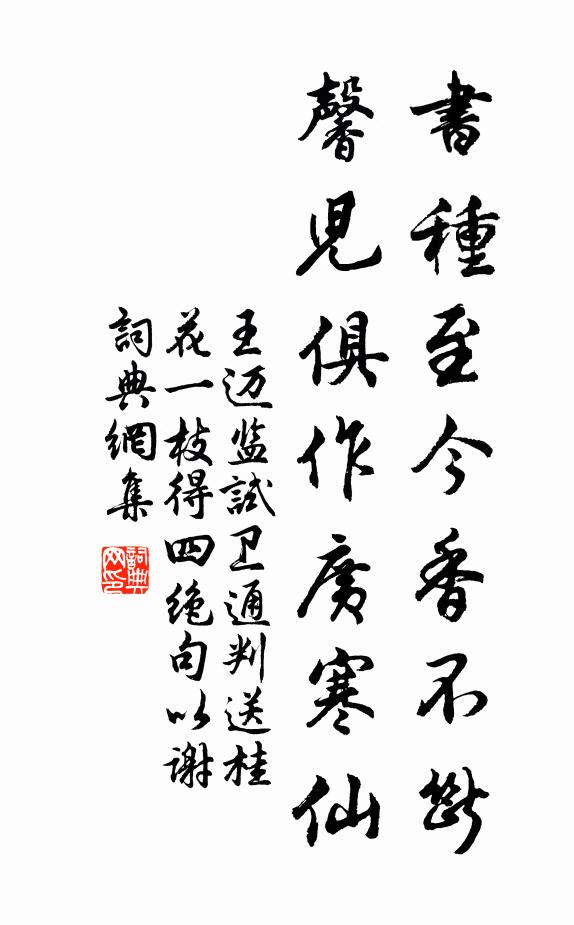 書種至今香不斷
馨児俱作廣寒仙
王迈监試卫通判送桂
花一枝得四絶句以谢
詞典網集
詞典網印